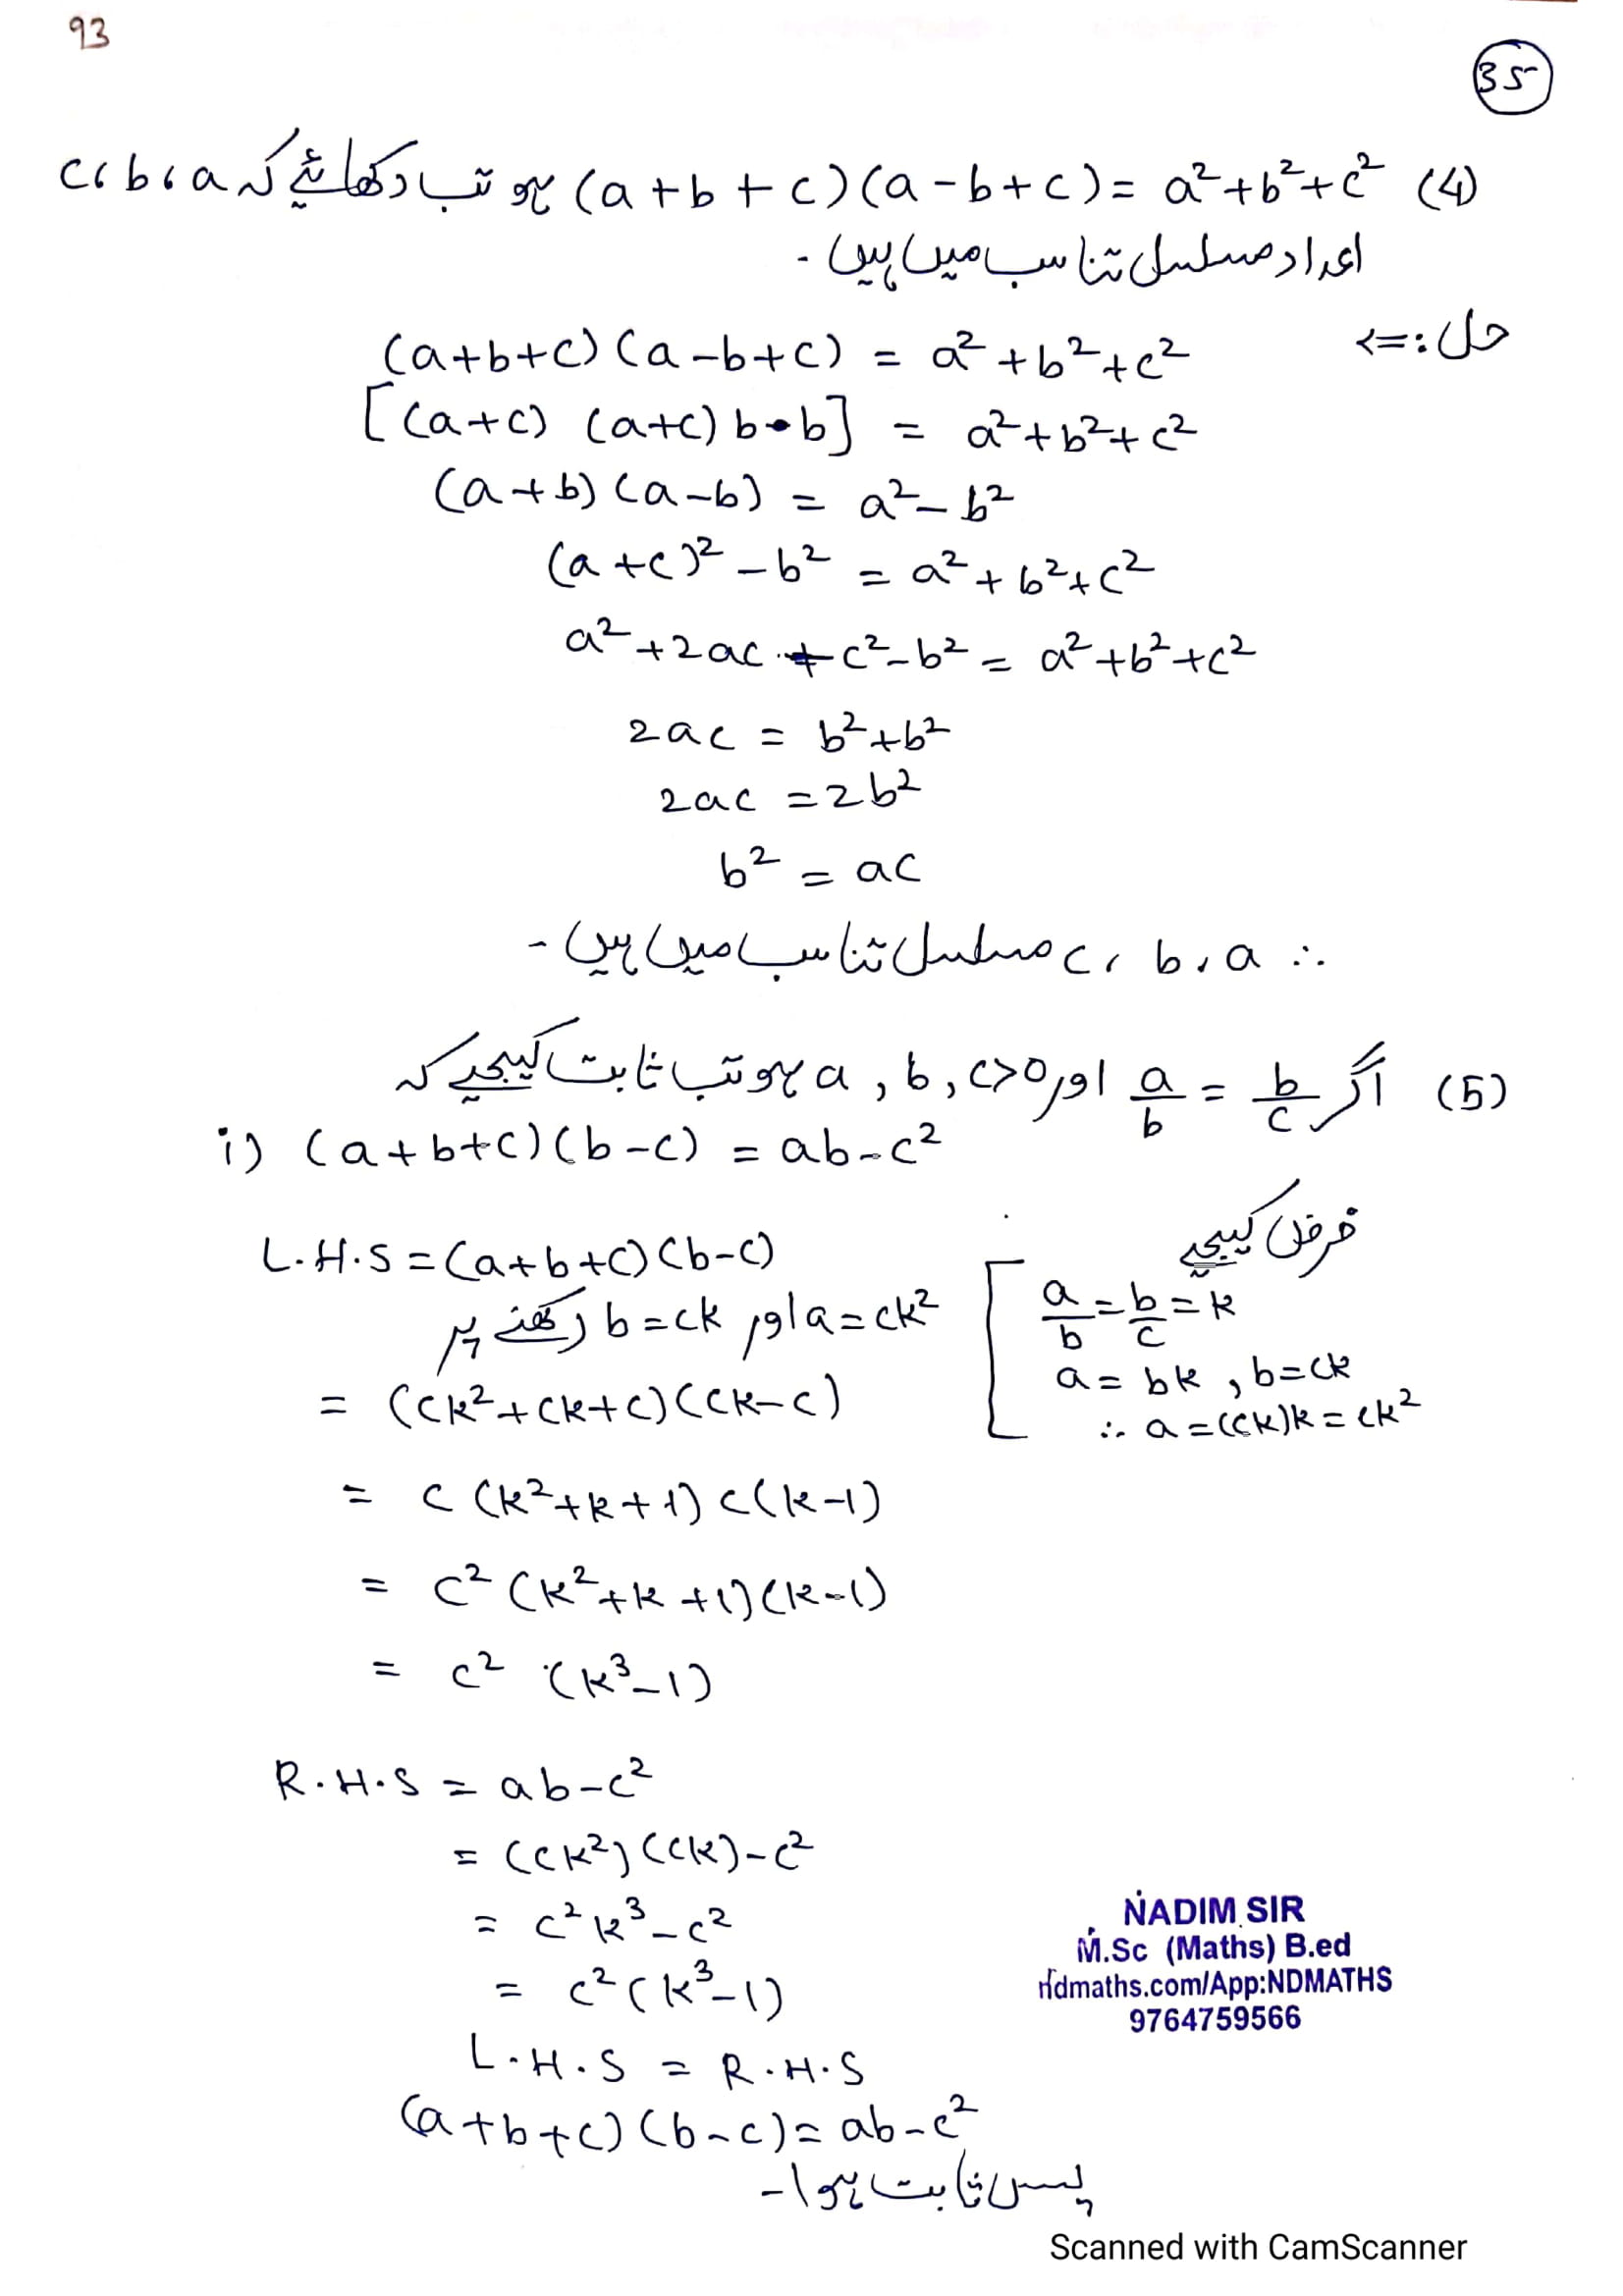 93
35
(4) (a+b+c)(a-b+c) = a²+b²+c² ہو تب دکھائیے کہ a، b، c
اعداد مسلسل تناسب میں ہیں ۔
حل :=>
(a+b+c) (a-b+c) = a²+b²+c²
[(a+c) (a+c) b-b] = a²+b²+c²
(a+b) (a-b) = a²-b²
(a+c)²-b² = a²+b²+c²
a²+2ac+c²-b² = a²+b²+c²
2ac = b²+b²
2ac = 2b²
b² = ac
∴ a، b، c مسلسل تناسب میں ہیں ۔
(5) اگر a/b = b/c اور a, b, c>0 ہو تب ثابت کیجیے کہ
i) (a+b+c)(b-c) = ab-c²
فرض کیجیے
a/b = b/c = k
a = bk , b=ck
∴ a = (ck)k = ck²
L.H.S = (a+b+c)(b-c)
a=ck² اور b=ck رکھنے پر
= (ck²+ck+c)(ck-c)
= c (k²+k+1) c(k-1)
= c² (k²+k+1)(k-1)
= c² (k³-1)
R.H.S = ab-c²
= (ck²)(ck)-c²
= c²k³-c²
= c²(k³-1)
L.H.S = R.H.S
(a+b+c)(b-c) = ab-c²
پس ثابت ہوا ۔
NADIM SIR
M.Sc (Maths) B.ed
ndmaths.com/App:NDMATHS
9764759566
Scanned with CamScanner